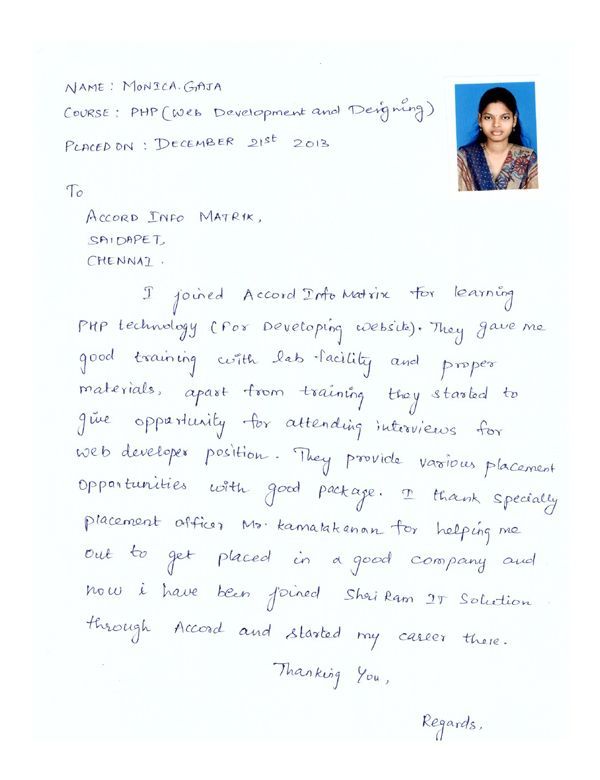 NAME : MONICA. GAJA
COURSE : PHP (Web Development and Deigning)
PLACED ON : DECEMBER 21st 2013
To
ACCORD INFO MATRIX,
SAIDAPET,
CHENNAI.
I joined Accord Info Matrix for learning
PHP technology (For Developing website). They gave me
good training with lab facility and proper
materials, apart from training they started to
give opportunity for attending interviews for
web developer position. They provide various placement
opportunities with good package. I thank specially
placement officer Mr. Kamalakanan for helping me
out to get placed in a good company and
now i have been joined Shri Ram IT Solution
through Accord and started my career there.
Thanking You,
Regards,